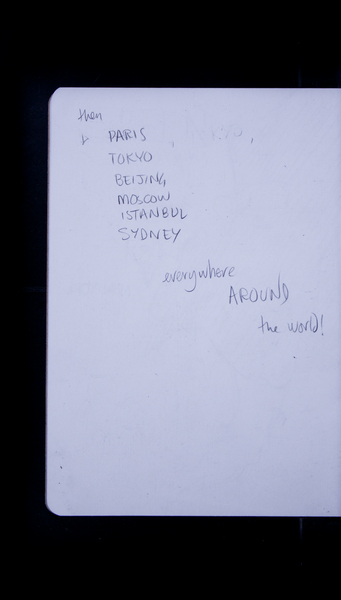 then
PARIS
TOKYO
BEIJING
MOSCOW
ISTANBUL
SYDNEY
everywhere
AROUND
the world!